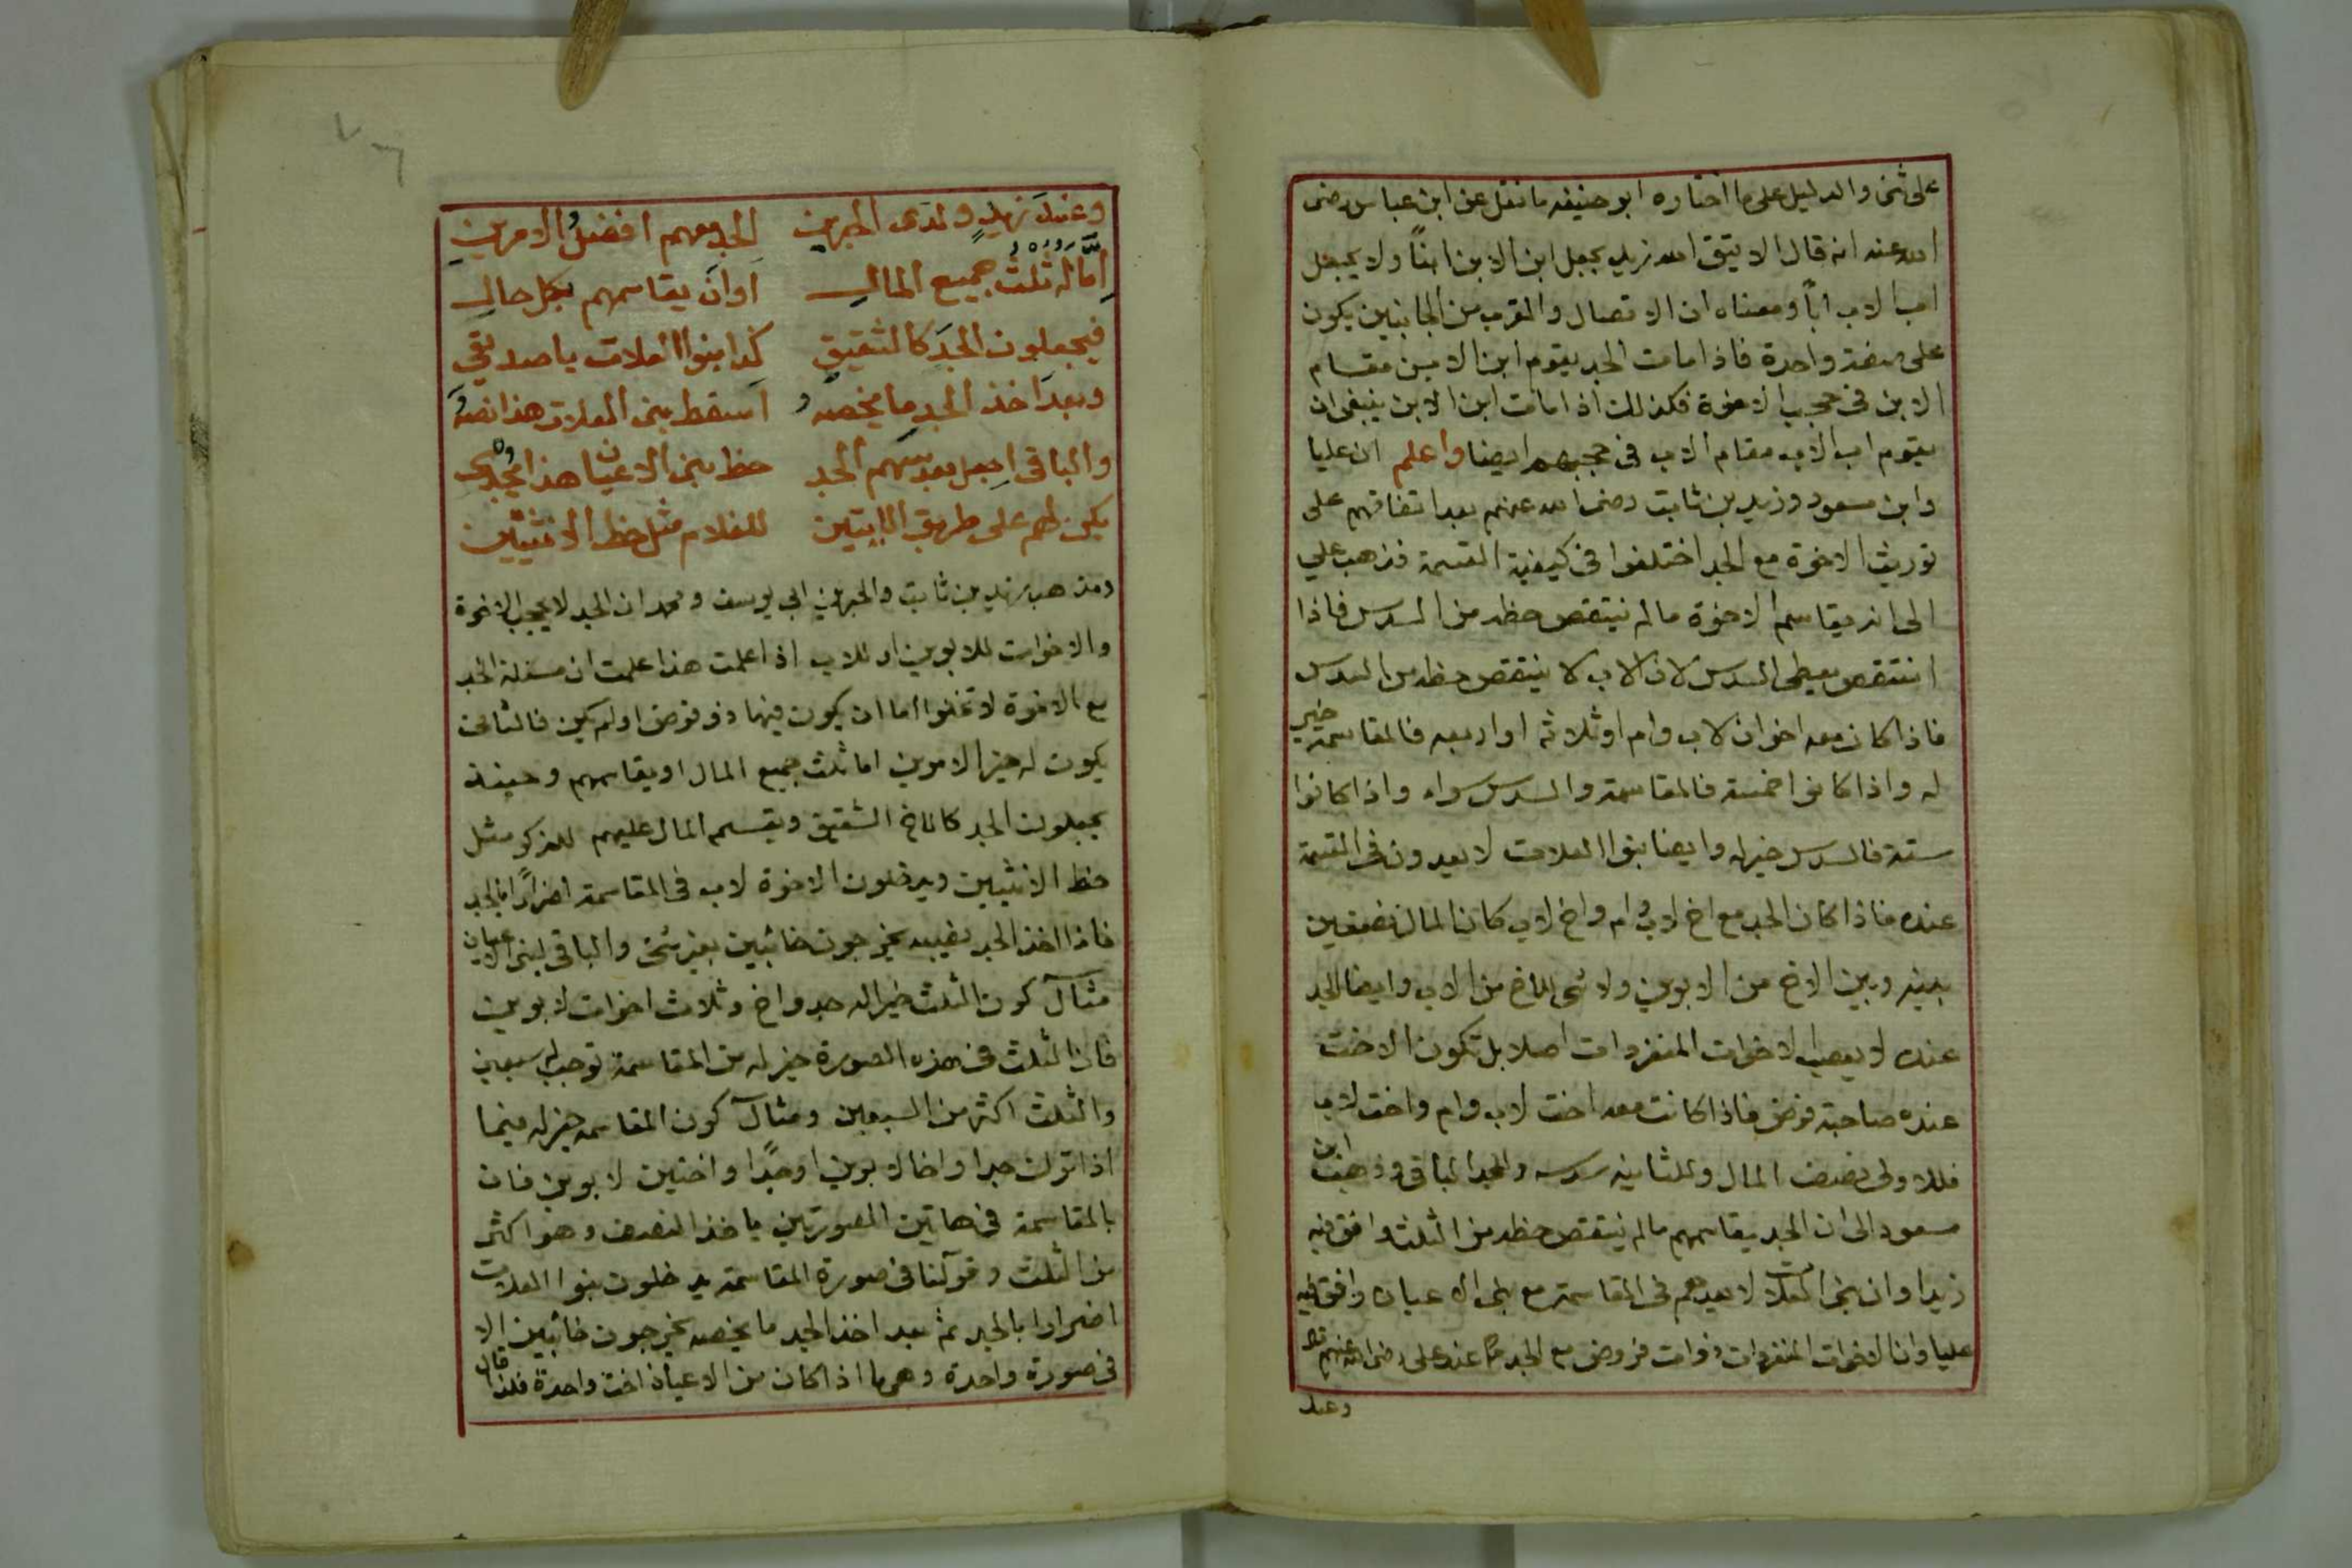 على شئ والدليل على ما اختاره ابو حنيفه ما نقل عن ابن عباس رضى
الله عنه انه قال الا يتق الله زيد يجعل ابن الابن ابنًا ولا يجعل
اب الاب اباً ومعناه ان الاتصال والقرب من الجانبين يكون
على صفة واحدة فاذا مات الجد يقوم ابن الابن مقام
الابن فى حجب الاخوة فكذلك اذا مات ابن الابن ينبغى ان
يقوم اب الاب مقام الاب فى حجبهم ايضا واعلم ان عليا
وابن مسعود وزيد بن ثابت رضى الله عنهم بعد اتفاقهم على
توريث الاخوة مع الجد اختلفوا فى كيفية القسمة فذهب علي
الى انه يقاسم الاخوة ما لم ينتقص حظه من السدس فاذا
انتقص يعطى السدس لان الاب لا ينتقص حظه من السدس
فاذا كان معه اخوان لاب وام او ثلاثه او اربعه فالمقاسمة خير
له واذا كانوا خمسة فالمقاسمة والسدس سواء واذا كانوا
ستة فالسدس خير له وايضا بنوا العلات لا يعدون فى القسمة
عنده فاذا كان الجد مع اخ لاب وام واخ لاب كان المال نصفين
بينه وبين الاخ من الابوين ولا شئ للاخ من الاب وايضا الجد
عنده لا يعصب الاخوات المنفردات اصلا بل تكون الاخت
عنده صاحبة فرض فاذا كانت معه اخت لاب وام واخت لاب
فللاولى نصف المال وللثانيه سدسه وللجد الباقى وذهب ابن
مسعود الى ان الجد يقاسمهم ما لم ينتقص حظه من الثلث وافق فيه
زيدا وان بنى العلات لا يعدهم فى المقاسمة مع بنى الاعيان وافق فيه
عليا وان الاخوات المنفردات ذوات فروض مع الجد كما عند على رضى الله عنهم
وعند
وعندَ زيدٍ ولدى الحبرين الجد معهم افضلُ الامرينِ
اِمَّا له ثُلُثُ جميع المالِ اوان يقاسمهم بكل حالِ
فيجعلون الجدَ كالشقيقِ كذا بنوا العلات يا صديقي
وبعدَ اخذ الجد ما يخصهُ اَسقط بنى العلات هذا نصهُ
والباقى اِجعل بعد سهم الجد حظ بنى الاعيان هذا يجدى
يكن لهم على طريق الابتين للغلام مثل حظ الانثيين
ومذهب زيد بن ثابت والحبرين ابي يوسف ومحمد ان الجد لا يحجب الاخوة
والاخوات للابوين او للاب اذا علمت هذا علمت ان مسئلة الجد
مع الاخوة لا تخلوا اما ان يكون فيها ذو فرض او لم يكن فالثانى
يكون له خير الامرين اما ثلث جميع المال او يقاسمهم وحينئذ
يجعلون الجد كالاخ الشقيق ويقسم المال عليهم للذكر مثل
حظ الانثيين ويدخلون الاخوة لاب فى المقاسمة اضرارًا بالجد
فاذا اخذ الجد نصيبه يخرجون خائبين بغير شئ والباقى لبنى الاعيان
مثال كون الثلث خيرا له جد واخ وثلاث اخوات لابوين
فان الثلث فى هذه الصورة خير له من المقاسمة توجب له سبعين
والثلث اكثر من السبعين ومثال كون المقاسمه خير له فيما
اذا ترك جدا واخا لابوين او جدًا واختين لابوين فان
بالمقاسمة فى هاتين الصورتين ياخذ النصف وهو اكثر
من الثلث وقولنا فى صورة المقاسمة يدخلون بنوا العلات
اضرارا بالجد ثم بعد اخذ الجد ما يخصه يخرجون خائبين الا
فى صورة واحدة وهى ما اذا كان من الاعيان اخت واحدة فلذا قال